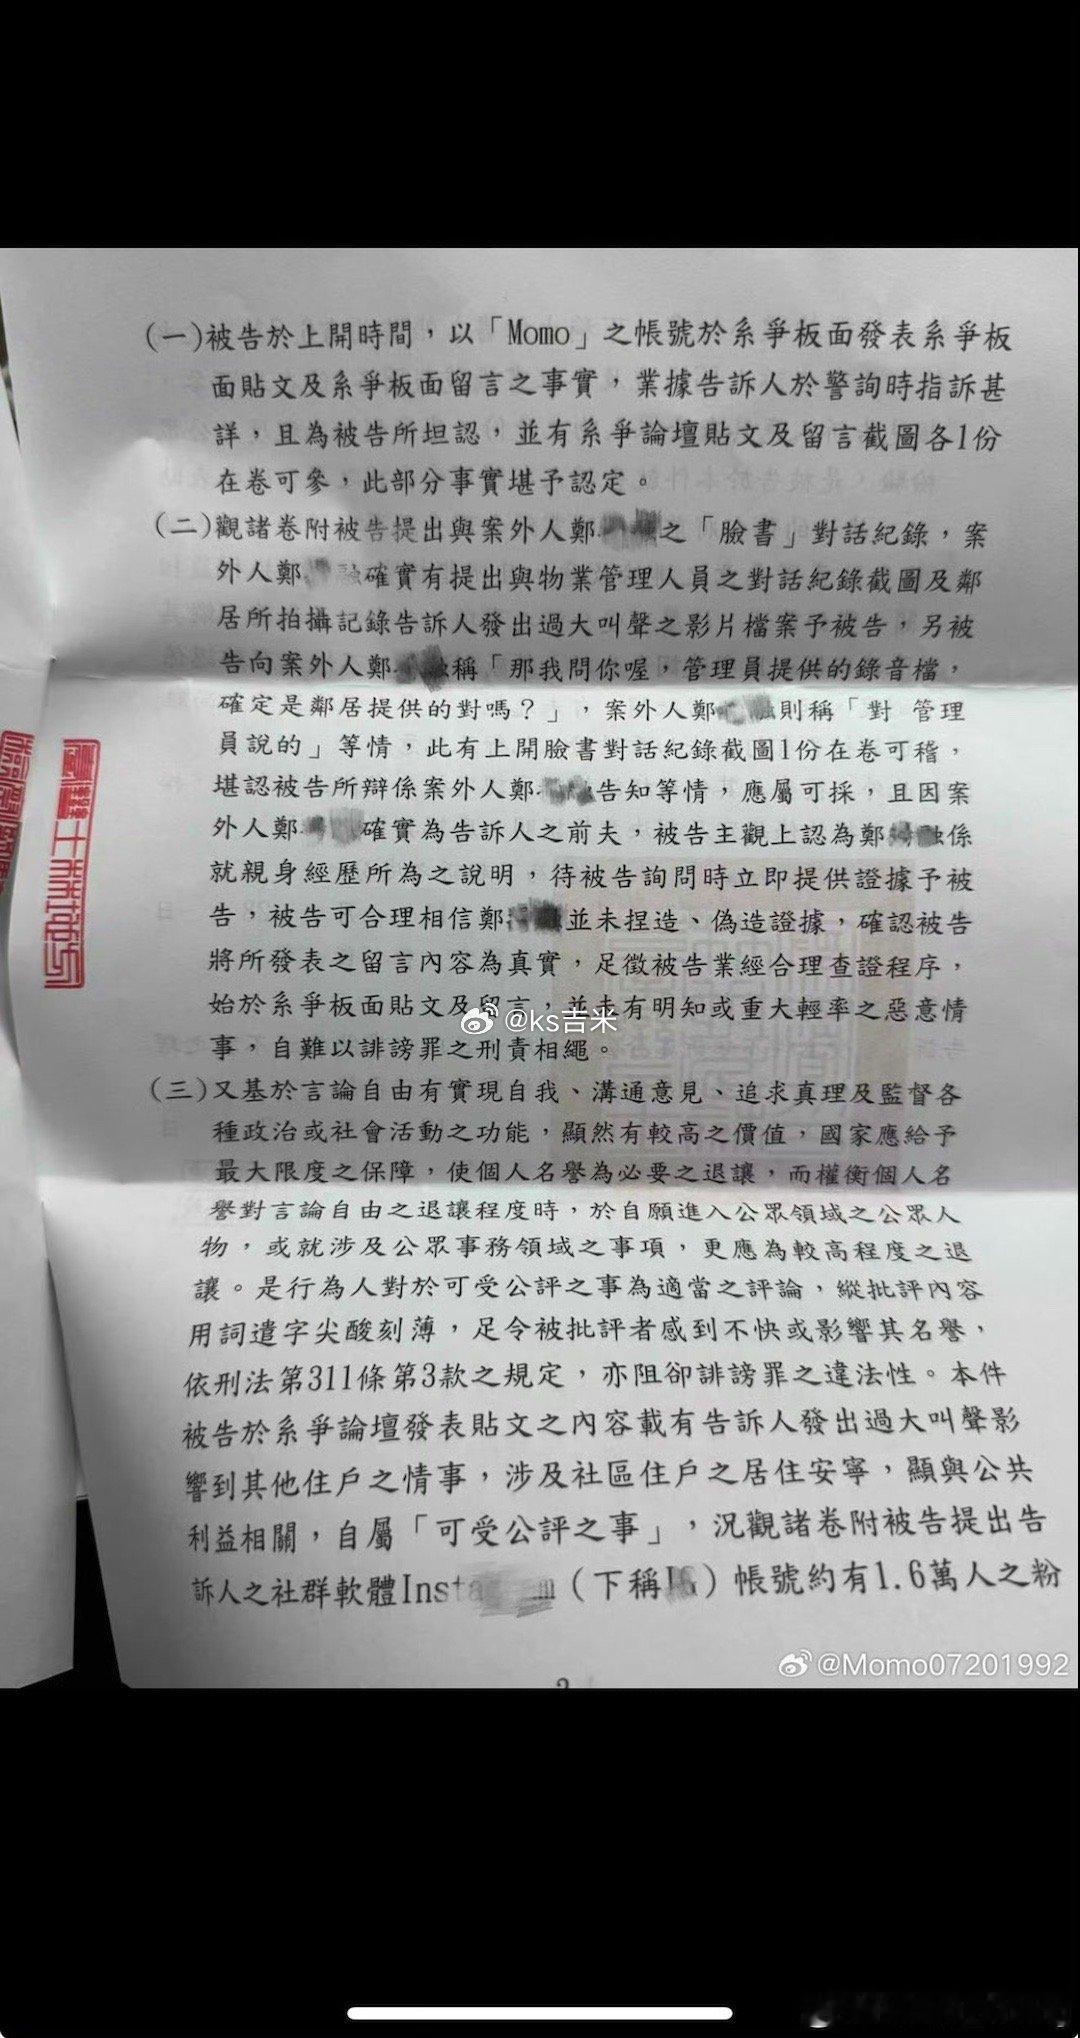 (一)被告於上開時間，以「Momo」之帳號於系爭板面發表系爭板
面貼文及系爭板面留言之事實，業據告訴人於警詢時指訴甚
詳，且為被告所坦認，並有系爭論壇貼文及留言截圖各1份
在卷可參，此部分事實堪予認定。
(二)觀諸卷附被告提出與案外人鄭之「臉書」對話紀錄，案
外人鄭融確實有提出與物業管理人員之對話紀錄截圖及鄰
居所拍攝記錄告訴人發出過大叫聲之影片檔案予被告，另被
告向案外人鄭融稱「那我問你喔，管理員提供的錄音檔，
確定是鄰居提供的對嗎？」，案外人鄭融則稱「對 管理
員說的」等情，此有上開臉書對話紀錄截圖1份在卷可稽，
堪認被告所辯係案外人鄭告知等情，應屬可採，且因案
外人鄭確實為告訴人之前夫，被告主觀上認為鄭融係
就親身經歷所為之說明，待被告詢問時立即提供證據予被
告，被告可合理相信鄭並未捏造、偽造證據，確認被告
將所發表之留言內容為真實，足徵被告業經合理查證程序，
始於系爭板面貼文及留言，並未有明知或重大輕率之惡意情
@ks吉米
事，自難以誹謗罪之刑責相繩。
(三)又基於言論自由有實現自我、溝通意見、追求真理及監督各
種政治或社會活動之功能，顯然有較高之價值，國家應給予
最大限度之保障，使個人名譽為必要之退讓，而權衡個人名
譽對言論自由之退讓程度時，於自願進入公眾領域之公眾人
物，或就涉及公眾事務領域之事項，更應為較高程度之退
讓。是行為人對於可受公評之事為適當之評論，縱批評內容
用詞遣字尖酸刻薄，足令被批評者感到不快或影響其名譽，
依刑法第311條第3款之規定，亦阻卻誹謗罪之違法性。本件
被告於系爭論壇發表貼文之內容載有告訴人發出過大叫聲影
響到其他住戶之情事，涉及社區住戶之居住安寧，顯與公共
利益相關，自屬「可受公評之事」，況觀諸卷附被告提出告
訴人之社群軟體Instam（下稱IG）帳號約有1.6萬人之粉
@Momo07201992